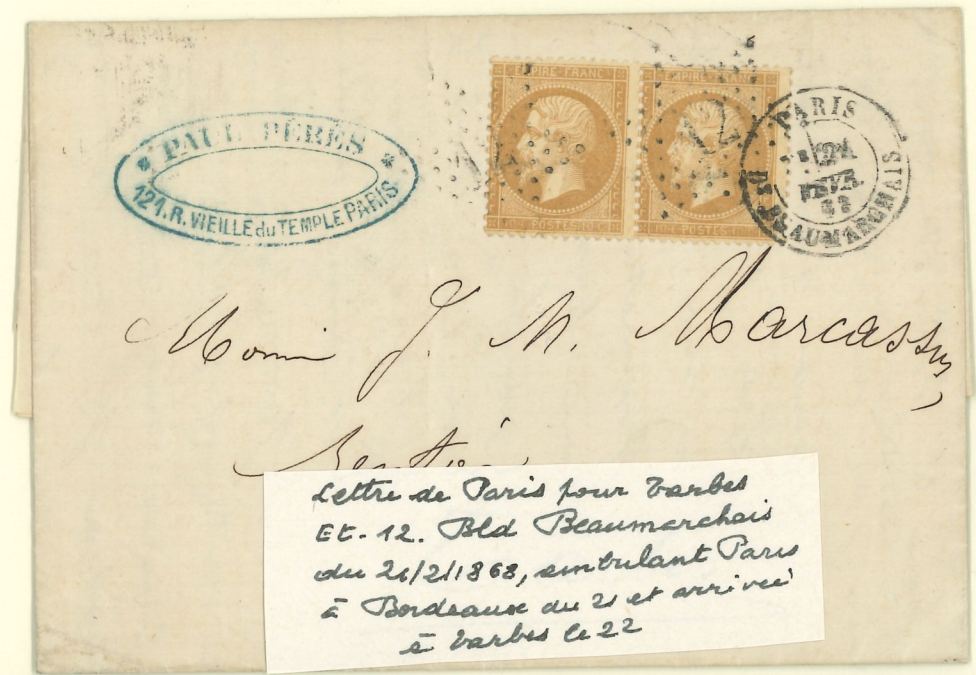 PAUL PÉRÈS
121.R.VIEILLE du TEMPLE PARIS
EMPIRE FRANC
POSTES 10 C
EMPIRE FRANC
POSTES
PARIS
21
FEVR.
68
Bd BEAUMARCHAIS
J. M. Marcassus,
Lettre de Paris pour Tarbes
Et-12. Bld Beaumarchais
du 21/2/1868, ambulant Paris
à Bordeaux du 21 et arrivée
à Tarbes le 22